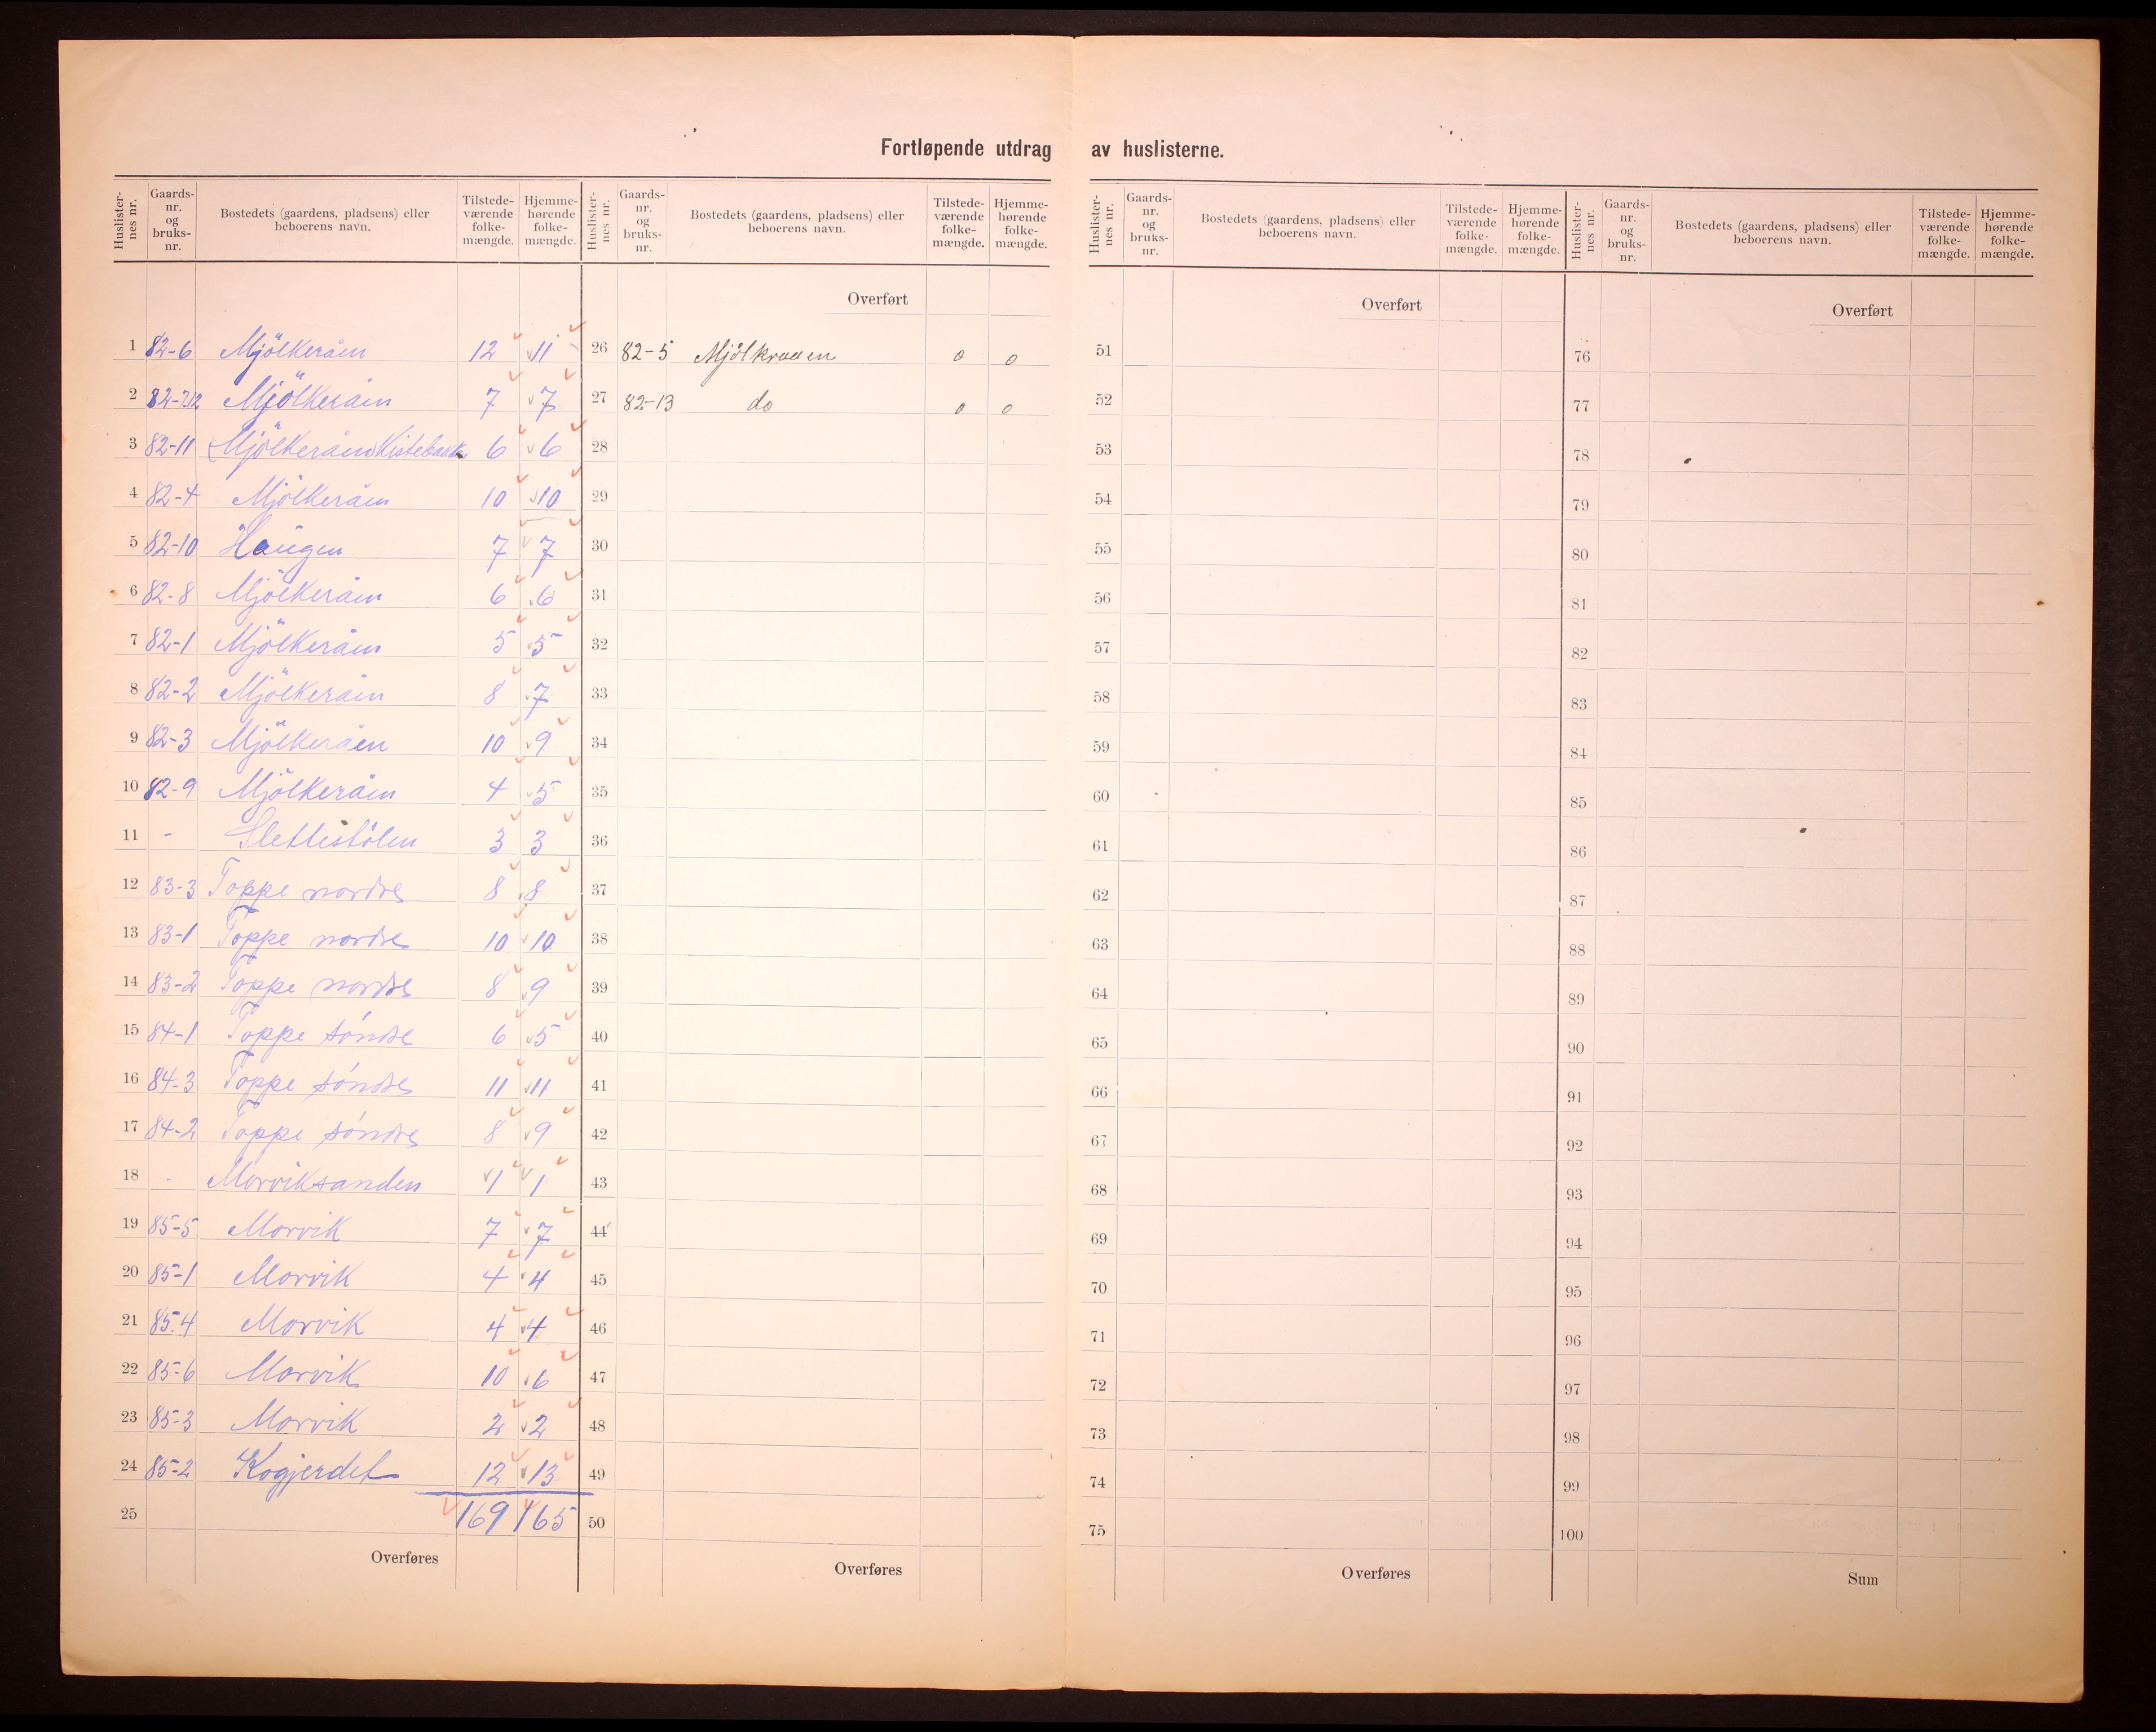 Fortløpende utdrag av huslisterne.
Huslister-nes nr. Gaards-nr. og bruks-nr. Bostedets (gaardens, pladsens) eller beboerens navn. Tilstede-værende folke-mængde. Hjemme-hørende folke-mængde. Huslister-nes nr. Gaards-nr. og bruks-nr. Bostedets (gaardens, pladsens) eller beboerens navn. Tilstede-værende folke-mængde. Hjemme-hørende folke-mængde. Huslister-nes nr. Gaards-nr. og bruks-nr. Bostedets (gaardens, pladsens) eller beboerens navn. Tilstede-værende folke-mængde. Hjemme-hørende folke-mængde. Huslister-nes nr. Gaards-nr. og bruks-nr. Bostedets (gaardens, pladsens) eller beboerens navn. Tilstede-værende folke-mængde. Hjemme-hørende folke-mængde.
Overført Overført Overført
1 82-6 Mjölkeråen 12 11 26 82-5 Mjölkraaen 0 0 51 76
2 82-7.12 Mjölkeråen 7 7 27 82-13 do 0 0 52 77
3 82-11 Mjölkeråen 6 6 28 53 78
4 82-4 Mjölkeråen 10 10 29 54 79
5 82-10 Haugen 7 7 30 55 80
6 82-8 Mjölkeråen 6 6 31 56 81
7 82-1 Mjölkeråen 5 5 32 57 82
8 82-2 Mjölkeråen 8 7 33 58 83
9 82-3 Mjölkeråen 10 9 34 59 84
10 82-9 Mjölkeråen 4 5 35 60 85
11 - Slettestölen 3 3 36 61 86
12 83-3 Toppe nordre 8 8 37 62 87
13 83-1 Toppe nordre 10 10 38 63 88
14 83-2 Toppe nordre 8 9 39 64 89
15 84-1 Toppe söndre 6 5 40 65 90
16 84-3 Toppe söndre 11 11 41 66 91
17 84-2 Toppe söndre 8 9 42 67 92
18 - Morviksanden 1 1 43 68 93
19 85-5 Morvik 7 7 44 69 94
20 85-1 Morvik 4 4 45 70 95
21 85.4 Morvik 4 4 46 71 96
22 85-6 Morvik 10 6 47 72 97
23 85-3 Morvik 2 2 48 73 98
24 85-2 Kogjerdet 12 13 49 74 99
25 169 165 50 75 100
Overføres Overføres Overføres Sum